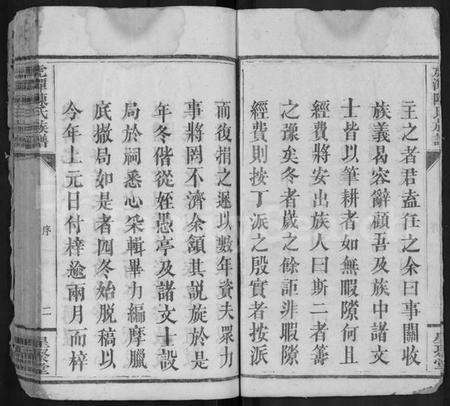 主之者君盍往之余曰事關收
族義曷容辭顧吾及族中諸文
士皆以筆耕者如無暇隙何且
經費將安出族人曰斯二者籌
之豫矣冬者歲之餘詎非暇隙
經費則按丁派之殷實者按派
而復捐之遲以數年資夫眾力
事將罔不濟余頷其說於是
年冬偕從姪愚亭及諸文士設
局於祠悉心采輯畢力編摩臘
底撤局如是者四冬始脫稿以
今年上元日付梓逾兩月而梓
虎潭陳氏族譜
序
二
星聚堂